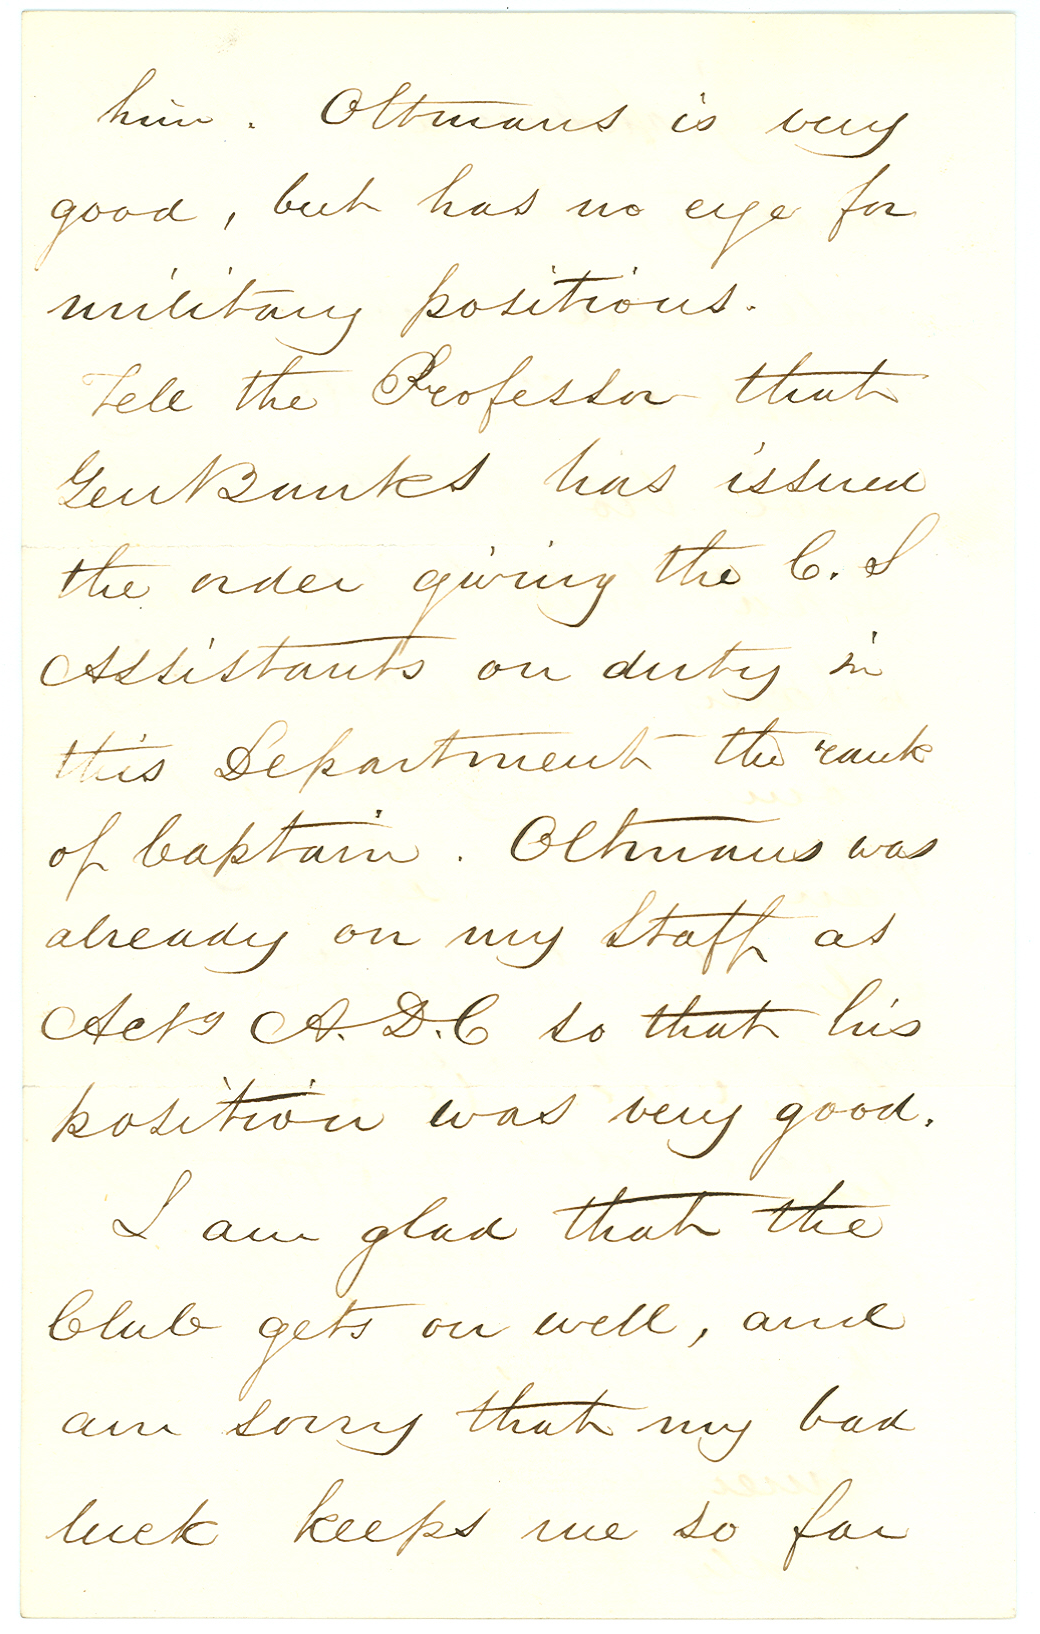 him. Oltmans is very
good, but has no eye for
military positions.
Tell the Professor that
Gen Banks has issued
the order giving the C. S
Assistants on duty in
this Department the rank
of Captain. Oltmans was
already on my Staff as
Actg A. D. C so that his
position was very good.
I am glad that the
Club gets on well, and
am sorry that my bad
luck keeps me so far